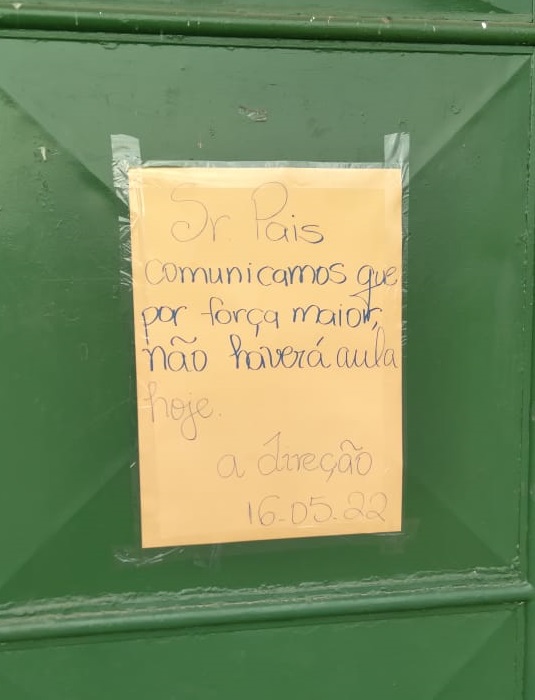 Sr. Pais
comunicamos que
por força maior,
não haverá aula
hoje.
a direção
16-05-22